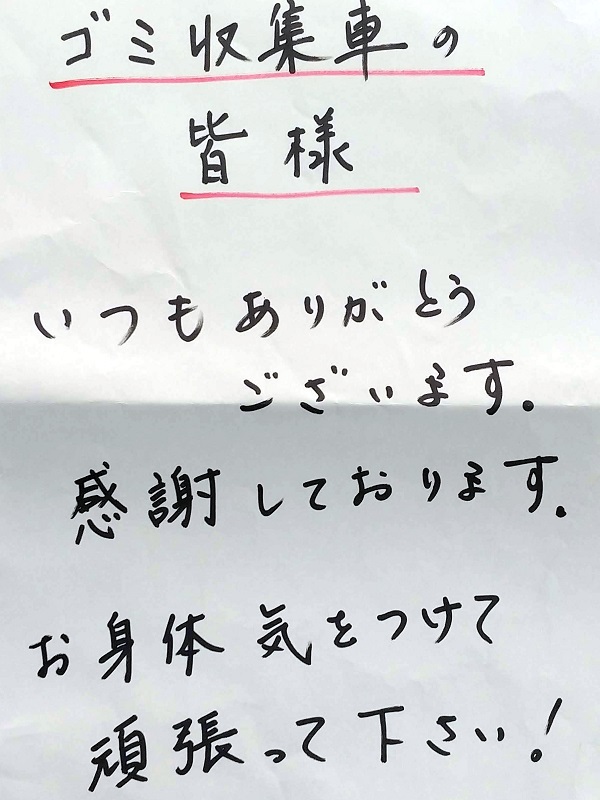 ゴミ収集車の
皆様
いつもありがとう
ございます。
感謝しております。
お身体気をつけて
頑張って下さい!